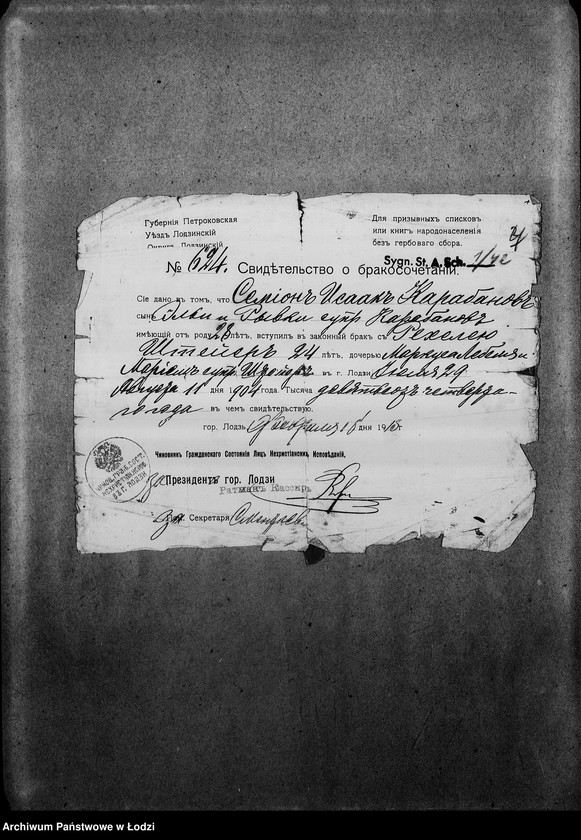 Губернія Петроковская
Уѣздъ Лодзинскій
Округъ Лодзинскій
Для призывныхъ списковъ
или книгъ народонаселенія
безъ гербоваго сбора.
Sygn. St. A. Sch. 1/42
№ 624. Свидѣтельство о бракосочетаніи.
Сіе дано въ томъ, что Семіонъ Исаакъ Карабановъ
сынъ и Рывки супр Карабановъ
имѣющій отъ роду 28 лѣтъ, вступилъ въ законный бракъ съ Рехелею
24 лѣтъ, дочерью Маркуса
супр. въ г. Лодзи Іюля 29
Августа 11 дня 1904 года. Тысяча девятьсотъ четверта-
го года въ чемъ свидѣтельствую.
гор. Лодзь, Февраля дня 19
Чиновникъ Гражданскаго Состоянія Лицъ Нехристіанскихъ Исповѣданій,
За Президентъ гор. Лодзи
Ратманъ Кассиръ
За Секретаря
Archiwum Państwowe w Łodzi